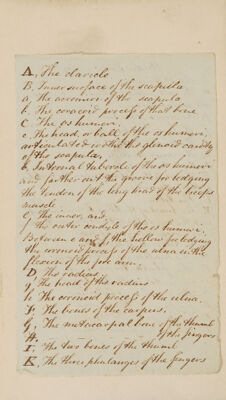 A, The clavicle
B, Inner surface of the scapula
a, the acromen of the scapula
b, the coracoid process of that bone
C, The os humeri.
c, The head, or ball, of the os humeri,
articulated with the glenoid cavity
of the scapula,
b, Internal tubercle of the os humeri
and further out the groove for lodging
the tendon of the long head of the biceps
muscle
C, The inner, and,
f, the outer condyle of the os humeri,
Between e and f, the hollow for lodging
the coronoid process of the ulna in the
flexion of the fore arm.
D, The radius,
g, the head of the radius
h, the coronoid process of the ulna.
F, The bones of the carpus,
G, The metacarpal bone of the thumb
H, of the fingers
I, The two bones of the thumb
K, The three phalanges of the fingers